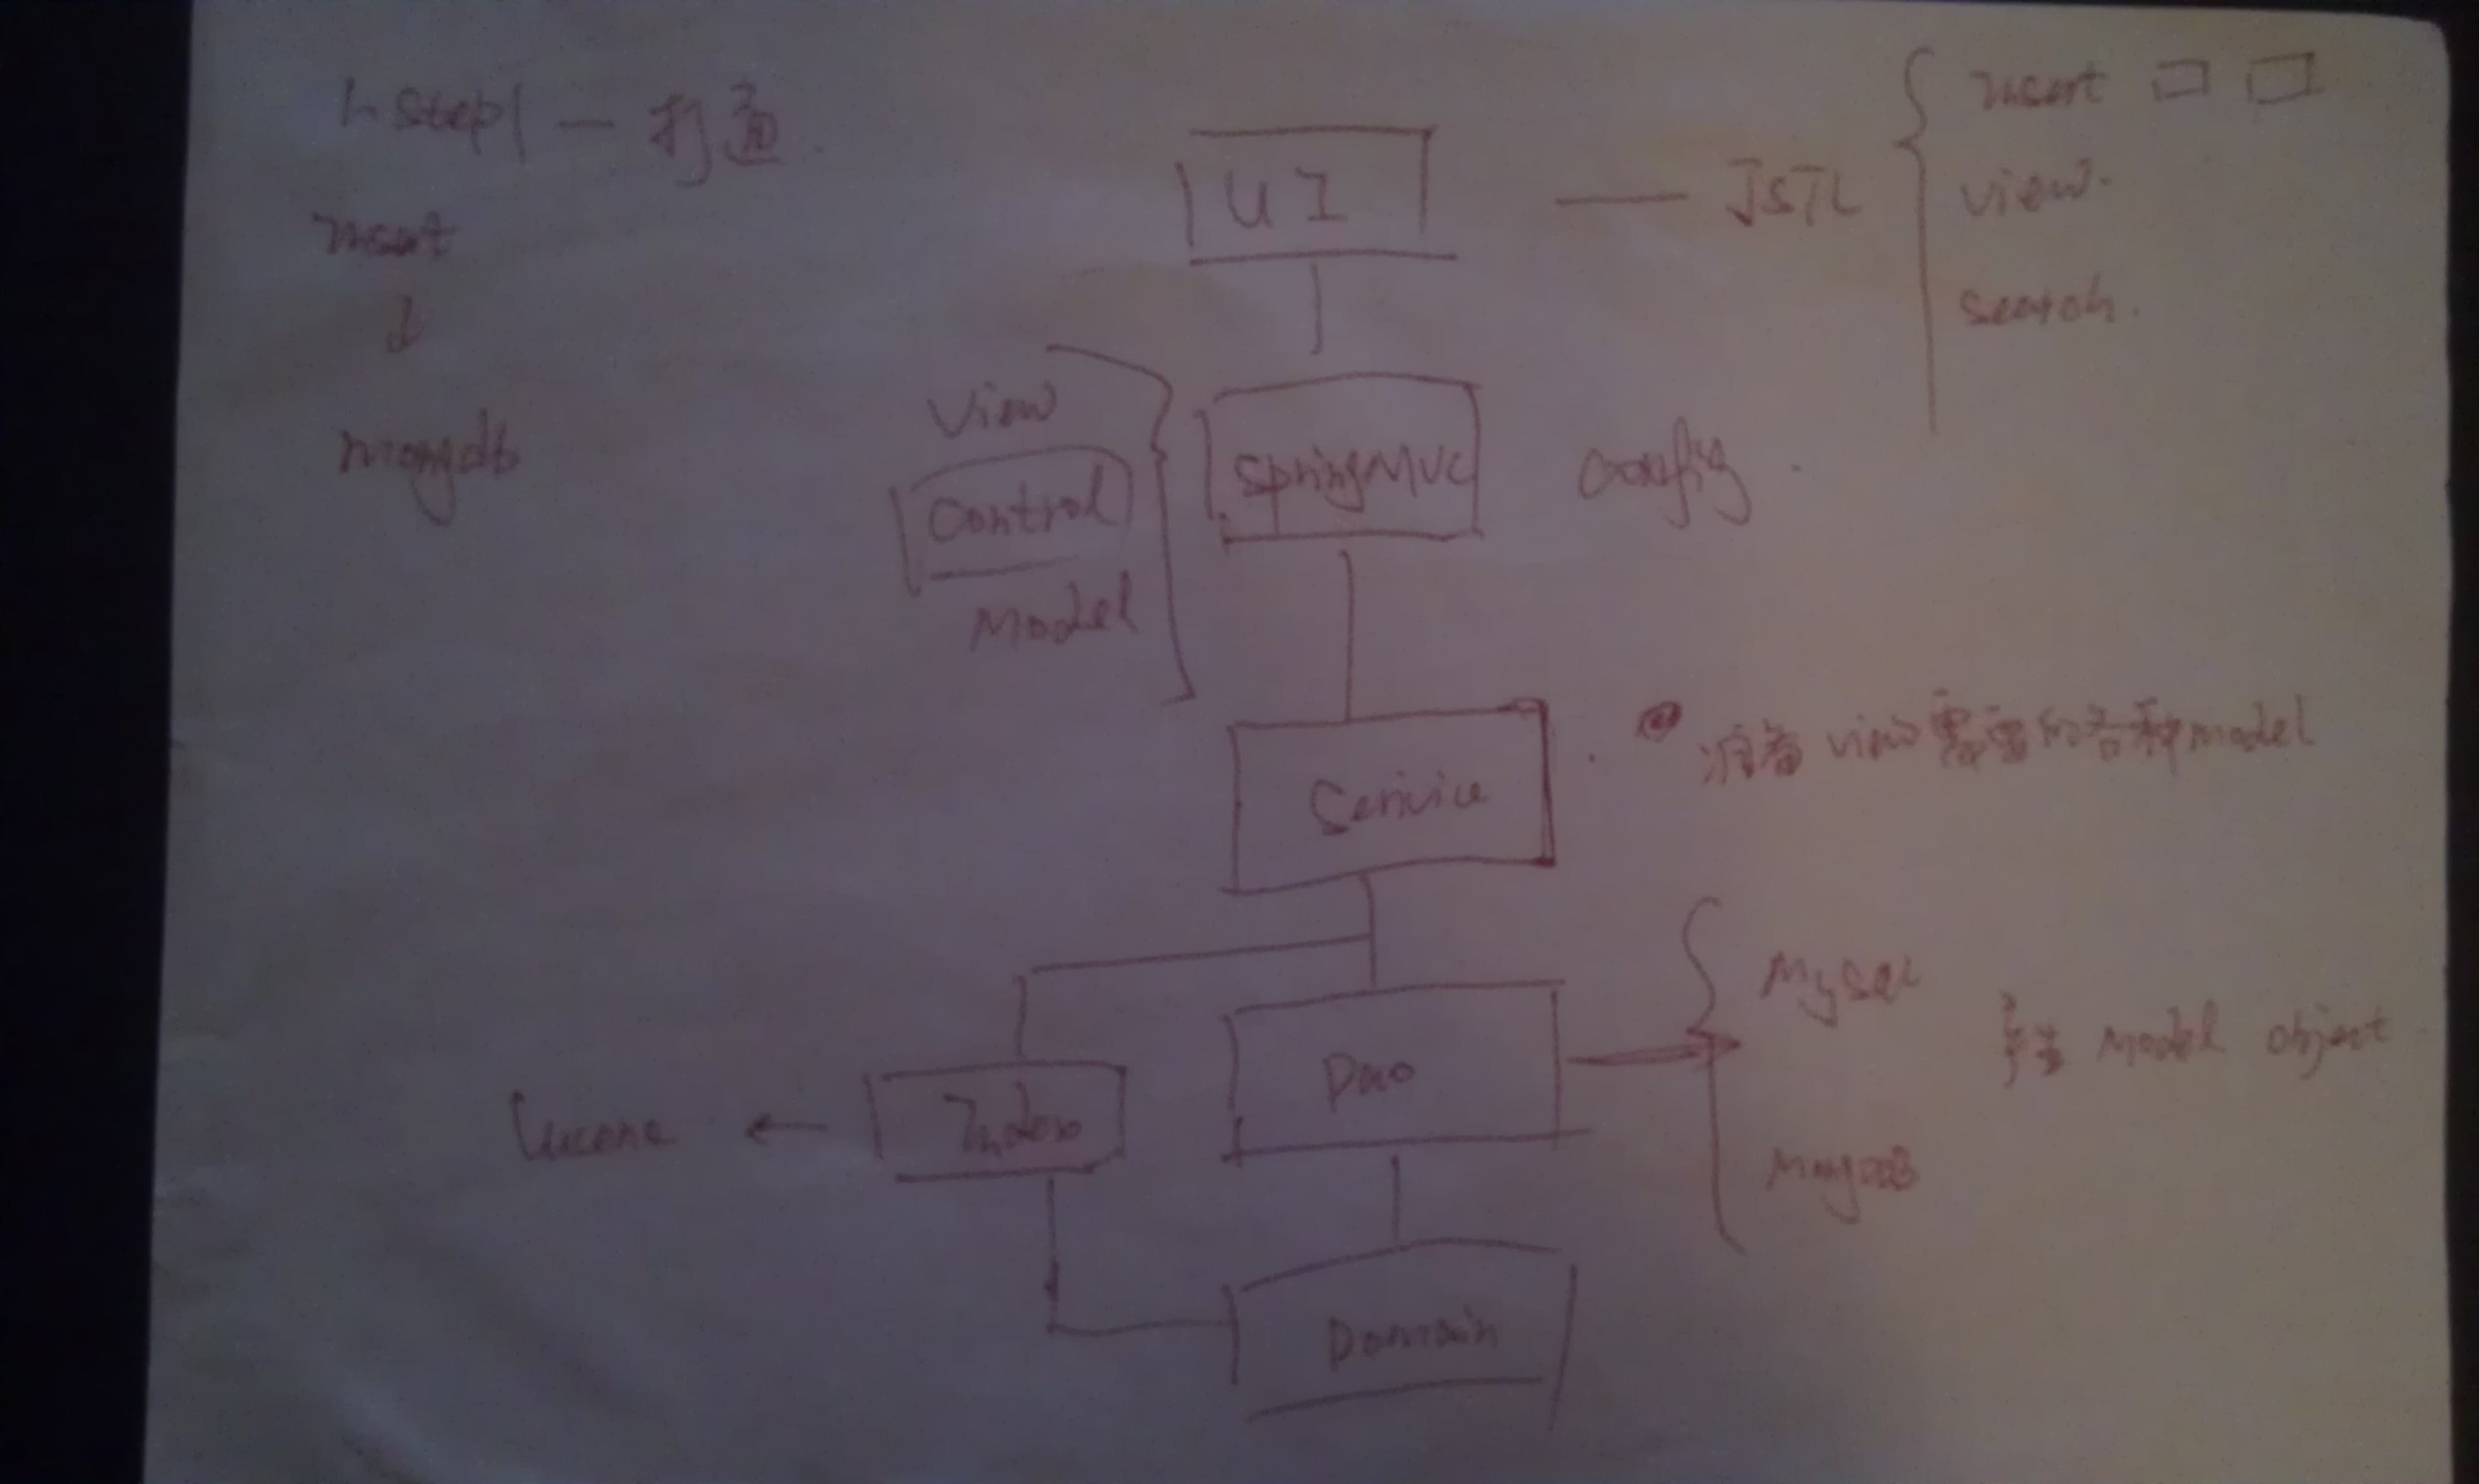 Step1 — 打通.
insert
↓
mongdb
UI — JSTL
insert
view.
search.
View
Control
Model
SpringMVC
config.
Serivice
准备 view需要的各种model
Dao
MySQL
MongoDB
产生 Model object
Index
lucene
Domain